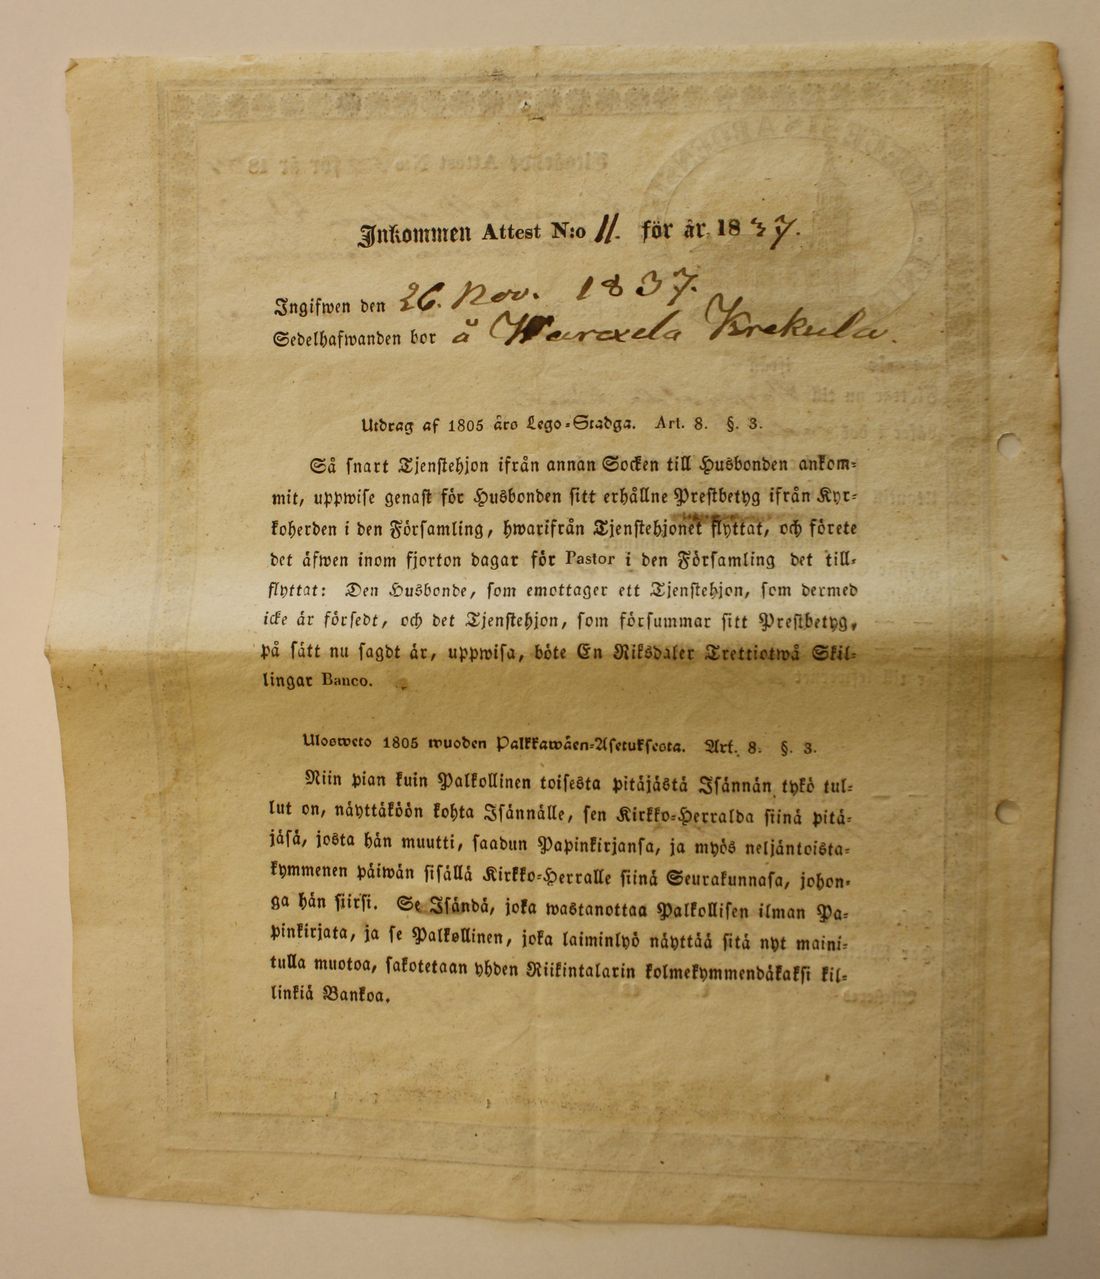 Inkommen Attest N:o 11. för år 1837.
Ingifwen den 26. Nov. 1837.
Sedelhafwanden bor å Waraxela Krekula.
Utdrag af 1805 års Lego-Stadga. Art. 8. §. 3.
Så snart Tjenstehjon ifrån annan Socken till Husbonden ankom-
mit, uppwise genast för Husbonden sitt erhållne Prestbetyg ifrån Kyr-
koherden i den Församling, hwarifrån Tjenstehjonet flyttat, och förete
det äfwen inom fjorton dagar för Pastor i den Församling det till-
flyttat: Den Husbonde, som emottager ett Tjenstehjon, som dermed
icke är försedt, och det Tjenstehjon, som försummar sitt Prestbetyg,
på sätt nu sagdt är, uppwisa, böte En Riksdaler Trettiotwå Skil-
lingar Banco.
Ulosweto 1805 wuoden Palkkawäen-Asetuksesta. Art. 8. §. 3.
Niin pian kuin Palkollinen toisesta pitäjästä Isännän tykö tul-
lut on, näyttäköön kohta Isännälle, sen Kirkko-Herralda siinä pitä-
jäsä, josta hän muutti, saadun Papinkirjansa, ja myös neljäntoista-
kymmenen päiwän sisällä Kirkko-Herralle siinä Seurakunnasa, johon-
ga hän siirsi. Se Isändä, joka wastanottaa Palkollisen ilman Pa-
pinkirjata, ja se Palkollinen, joka laiminlyö näyttää sitä nyt maini-
tulla muotoa, sakotetaan yhden Riikintalarin kolmekymmendäkaksi kil-
linkiä Bankoa.